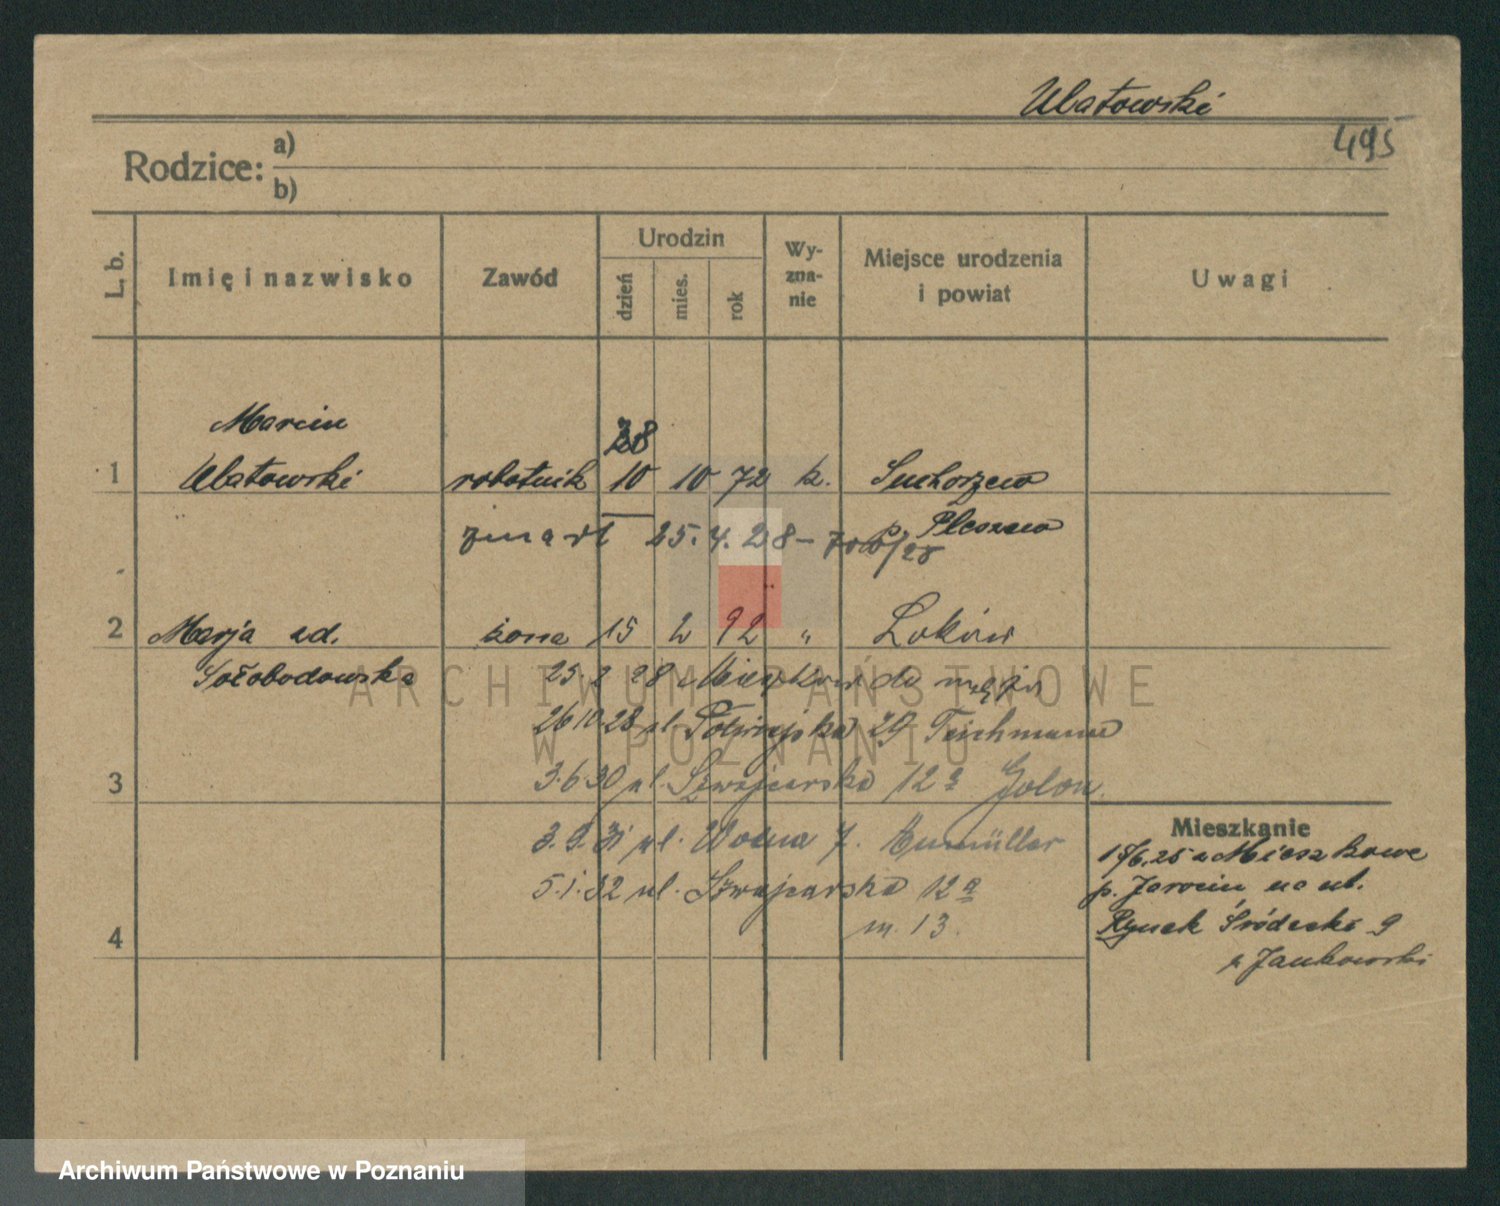 Ulatowski
495
Rodzice: a)
b)
L. b. Imię i nazwisko Zawód Urodzin dzień mies. rok Wy-zna-nie Miejsce urodzenia i powiat Uwagi
Marcin
28
1 Ulatowski robotnik 10 10 72 k. Suchorzew
zmarł 25. 4. 28 – p. Pleszew
2 Marja zd. żona 15 2 92 "
Sołobodowska 25. 2 28 Mieszków do męża
26 10 28 ul. 29 Teichmann
3 3. 6 30 ul. Szwajcarska 12a
Mieszkanie
3. 9. 31 ul. Wolna 7.
15/6. 25 z Mieszkowa
5. 1. 32 ul. Szwajcarska 12a
p. Jarocin na ul.
m. 13.
4 Rynek Śródecki 9
p. Jankowski
ARCHIWUM PAŃSTWOWE
W POZNANIU
Archiwum Państwowe w Poznaniu